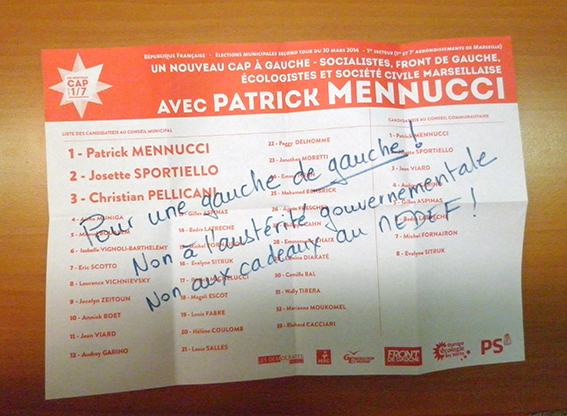 RÉPUBLIQUE FRANÇAISE - ÉLECTIONS MUNICIPALES SECOND TOUR DU 30 MARS 2014 - 1er SECTEUR (1er ET 7e ARRONDISSEMENTS DE MARSEILLE)
UN NOUVEAU CAP À GAUCHE - SOCIALISTES, FRONT DE GAUCHE,
ÉCOLOGISTES ET SOCIÉTÉ CIVILE MARSEILLAISE
AVEC PATRICK MENNUCCI
CAP
1/7
LISTE DES CANDIDAT(E)S AU CONSEIL MUNICIPAL
1 - Patrick MENNUCCI
2 - Josette SPORTIELLO
3 - Christian PELLICANI
6 - Isabelle VIGNOLI-BARTHELEMY
7 - Eric SCOTTO
8 - Laurence VICHNIEVSKY
9 - Jocelyn ZEITOUN
10 - Annick BOET
11 - Jean VIARD
12 - Audrey GARINO
16 - Evelyne SITRUK
18 - Magali ESCOT
19 - Louis FABRE
20 - Hélène COULOMB
21 - Louis SALLES
22 - Peggy DELHOMME
23 - Jonathan MORETTI
30 - Camille BAL
31 - Wally TIRERA
32 - Marianne MOUKOMEL
33 - Richard CACCIARI
CANDIDAT(E)S AU CONSEIL COMMUNAUTAIRE
1 - Patrick MENNUCCI
SPORTIELLO
3 - Jean VIARD
ASPINAS
7 - Michel FORNAIRON
8 - Evelyne SITRUK
Pour une gauche de gauche !
Non à l'austérité gouvernementale
Non aux cadeaux au MEDEF !
FRONT
DE GAUCHE
europe
écologie
les verts
PS